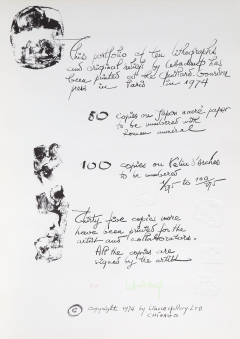 This portfolio of ten lithographs
and original
been printed at the
press in Paris in 1974
80 copies on Japon nacré paper
to be numbered with
roman numeral
100 copies on Velin d'arches
to be numbered
to
Thirty five copies more
have been printed for the
artist and collaborators.
AP the copies are
signed by the artist
© Copyright 1974 by Gallery LTD
CHICAGO